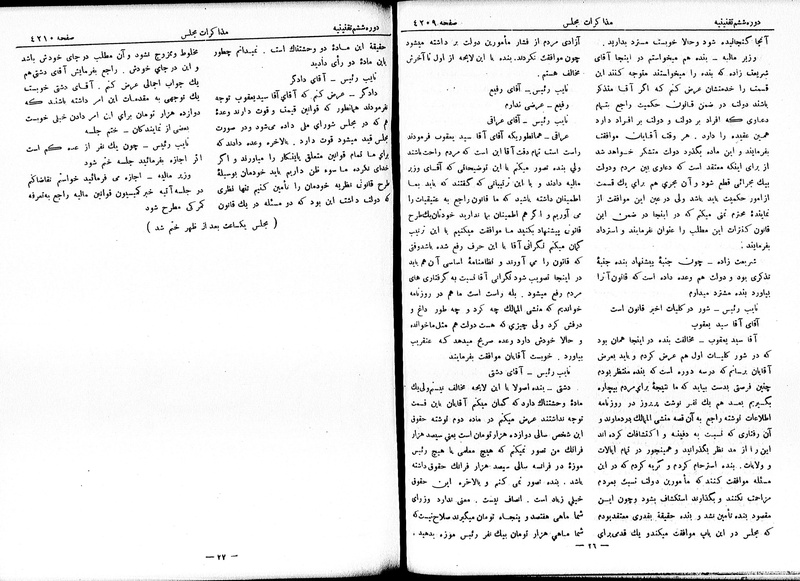 دوره ششم تقنینیه
مذاکرات مجلس
صفحه ۴۲۰۹
آنجا گنجانیده شود وحالا خوبست مسترد بدارید .
وزیر مالیه – بنده هم میخواستم در اینجا آقای
شریعت زاده که بنده را میخواستند متوجه کنند این
قسمت را خدمتشان عرض کنم که اگر آقا متذکر
باشند دولت در ضمن قانون حکمیت راجع بتمام
دعاوی که افراد بر دولت و دولت بر افراد دارد
همین عقیده را دارد . هر وقت آقایان موافقت
بفرمایند و این ماده بگذرد دولت متشکر خواهد شد
از برای اینکه معتقد است که دعاوی بین مردم ودولت
بیک مجرائی قطع شود و آن مجری هم برای یك قسمت
ازامور حکمیت باید باشد ولی در عین این موافقت از
نماینده محترم تمنی میکنم که در اینجا در ضمن این
قانون کنترات این مطلب را عنوان نفرمایند و استرداد
بفرمایند .
شریعت زاده – چون جنبهٔ پیشنهاد بنده جنبهٔ
تذکری بود و دولت هم وعده داده است که قانون آنرا
بیاورد بنده مسترد میدارم
نایب رئیس – شور در کلیات اخیر قانون است
آقای آقا سید یعقوب
آقا سید یعقوب – مخالفت بنده در اینجا همان بود
که در شور کلیات اول هم عرض کردم و باید بعرض
آقایان برسانم که درسه دوره است که بنده منتظر بودم
چنین فرصتی بدست بیاید که ما نتیجهٔ برای مردم بیچاره
بگیریم بعد هم یك نفر نوشت پریروز در روزنامه
اطلاعات نوشته راجع به آن قصه منشی الممالك بودماوند و
آن رفتاری که نسبت به دفینه و اکتشافات کرده اند
این را از مد نظر بگذرانید و همینجور در تمام ایالات
و ولایات . بنده استرحام کردم و گریه کردم که در این
مسئله موافقت کنند که مأمورین دولت نسبت بمردم
مزاحمت نکنند و بگذارند استکشاف بشود وچون این
مقصود بنده تأمین نشد و بنده حقیقة بقدری معتقد بودم
که مجلس در این باب موافقت میکندو یك قدمی برای
آزادی مردم از فشار مأمورین دولت بر داشته میشود
چون موافقت نکردند . بنده با این لایحه از اول تا آخرش
مخالف هستم .
نایب رئیس – آقای رفیع
رفیع – عرضی ندارم
نایب رئیس – آقای عراقی
عراقی – همانطوریکه آقای آقا سید یعقوب فرمودند
راست است تمام دقت آقا این است که مردم راحت باشند
ولی بنده تصور میکنم با این توضیحاتی که آقای وزیر
مالیه دادند و با این ترتیباتی که گفتند که باید بما
اطمینان داشته باشید که ما قانون راجع به عتیقیات را
می آوریم و اگر هم اطمینان بما ندارید خودتان یك طرح
قانونی پیشنهاد بکنید ما موافقت میکنیم با این ترتیب
گمان میکنم نگرانی آقا با این حرف رفع شده باشد وقتی
که قانون را می آورند و نظامنامهٔ اساسی آن هم باید
در اینجا تصویب شود نگرانی آقا نسبت به گرفتاری های
مردم رفع میشود . بله راست است ما هم در روزنامه
خواندیم که منشی الممالك چه کرد و چه طور داغ و
درفش کرد ولی چیزی که هست دولت هم مثل ماخوانده
و حالا خودش دارد وعده صریح میدهد که عنقریب
بیاورد . خوبست آقایان موافقت بفرمایند
نایب رئیس – آقای دشتی
دشتی – بنده اصولا با این لایحه مخالف نیستم ولی یك
مادهٔ وحشتناك دارد که گمان میکنم آقایان باین قسمت
توجه نداشتند عرض میکنم در ماده دوم نوشته حقوق
این شخص سالی دوازده هزار تومان است یعنی سیصد هزار
فرانك من تصور نمیکنم که هیچ معلمی یا هیچ رئیس
موزهٔ در فرانسه سالی سیصد هزار فرانك حقوق داشته
باشد . بنده تصور نمی کنم و بالاخره این حقوق
خیلی زیاد است . انصاف نیست . معنی ندارد وزرای
شما ماهی هفتصد و پنجاه تومان میگیرند صلاح نیست که
شما ماهی هزار تومان بیك نفر رئیس موزه بدهید .
– ۲۶ –
دوره ششم تقنینیه
مذاکرات مجلس
صفحه ۴۲۱۰
حقیقة این مادهٔ دو وحشتناك است . نمیدانم چطور
باین مادهٔ دو رأی دادید
نایب رئیس – آقای دادگر
دادگر – عرض کنم که آقای آقا سید یعقوب توجه
فرمودند همانطور که قوانین قیمت و قوت دارند وعدهٔ
هم که در مجلس شورای ملی داده می‌شود ودر صورت
مجلس قید میشود قوت دارد . بالاخره وعده دادند که
برای ما تمام قوانین متعلق باینکار را میاورند و اگر
خدای نکرده ما سوء ظن داریم باید خودمان بوسیلهٔ
طرح قانونی نظریه خودمان را تأمین کنیم تنها نظری
که دولت داشت این بود که دو مسئله در یك قانون
مخلوط وممزوج نشود و آن مطلب در جای خودش باشد
و این در جای خودش . راجع بفرمایش آقای دشتی هم
یك جواب اجمالی عرض کنم . آقای دشتی خوبست
یك توجهی به مقدمات این امر داشته باشند که
دوازده هزار تومان برای این امر دادن خیلی خوبست
بعضی از نمایندگان – ختم جلسه
نایب رئیس – چون یك نفر از عده کم است
اگر اجازه بفرمائید جلسه ختم شود
وزیر مالیه – اجازه می فرمائید خواستم تقاضا کنم
در جلسه آتیه خبر کمیسیون قوانین مالیه راجع به تعرفه
گمرکی مطرح شود
( مجلس یکساعت بعد از ظهر ختم شد )
– ۲۷ –